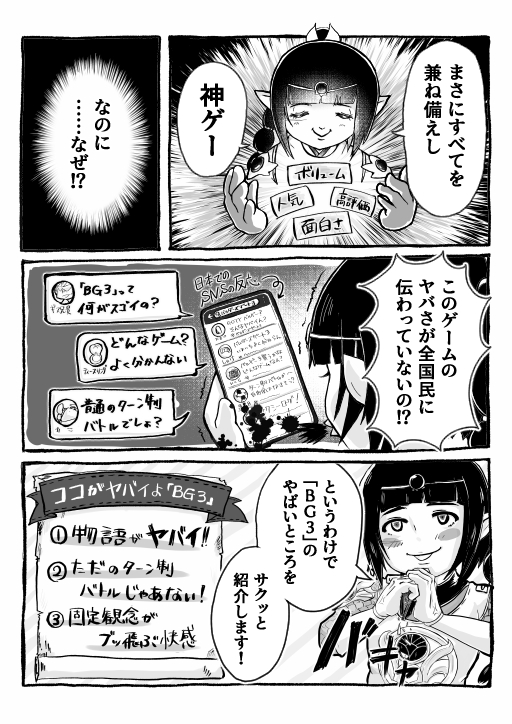 まさにすべてを
兼ね備えし
神ゲー
ボリューム
人気
高評価
面白さ
なのに
……なぜ!?
このゲームの
ヤバさが全国民に
伝わっていないの!?
日本での
SNSの反応
「BG3」って
何がスゴイの?
どんなゲーム?
よく分かんない
普通のターン制
バトルでしょ?
というわけで
「BG3」の
やばいところを
サクッと
紹介します!
バキャ
ココがヤバイよ「BG3」
①物語がヤバイ!!
②ただのターン制
バトルじゃあない!
③固定観念が
ブッ飛ぶ快感